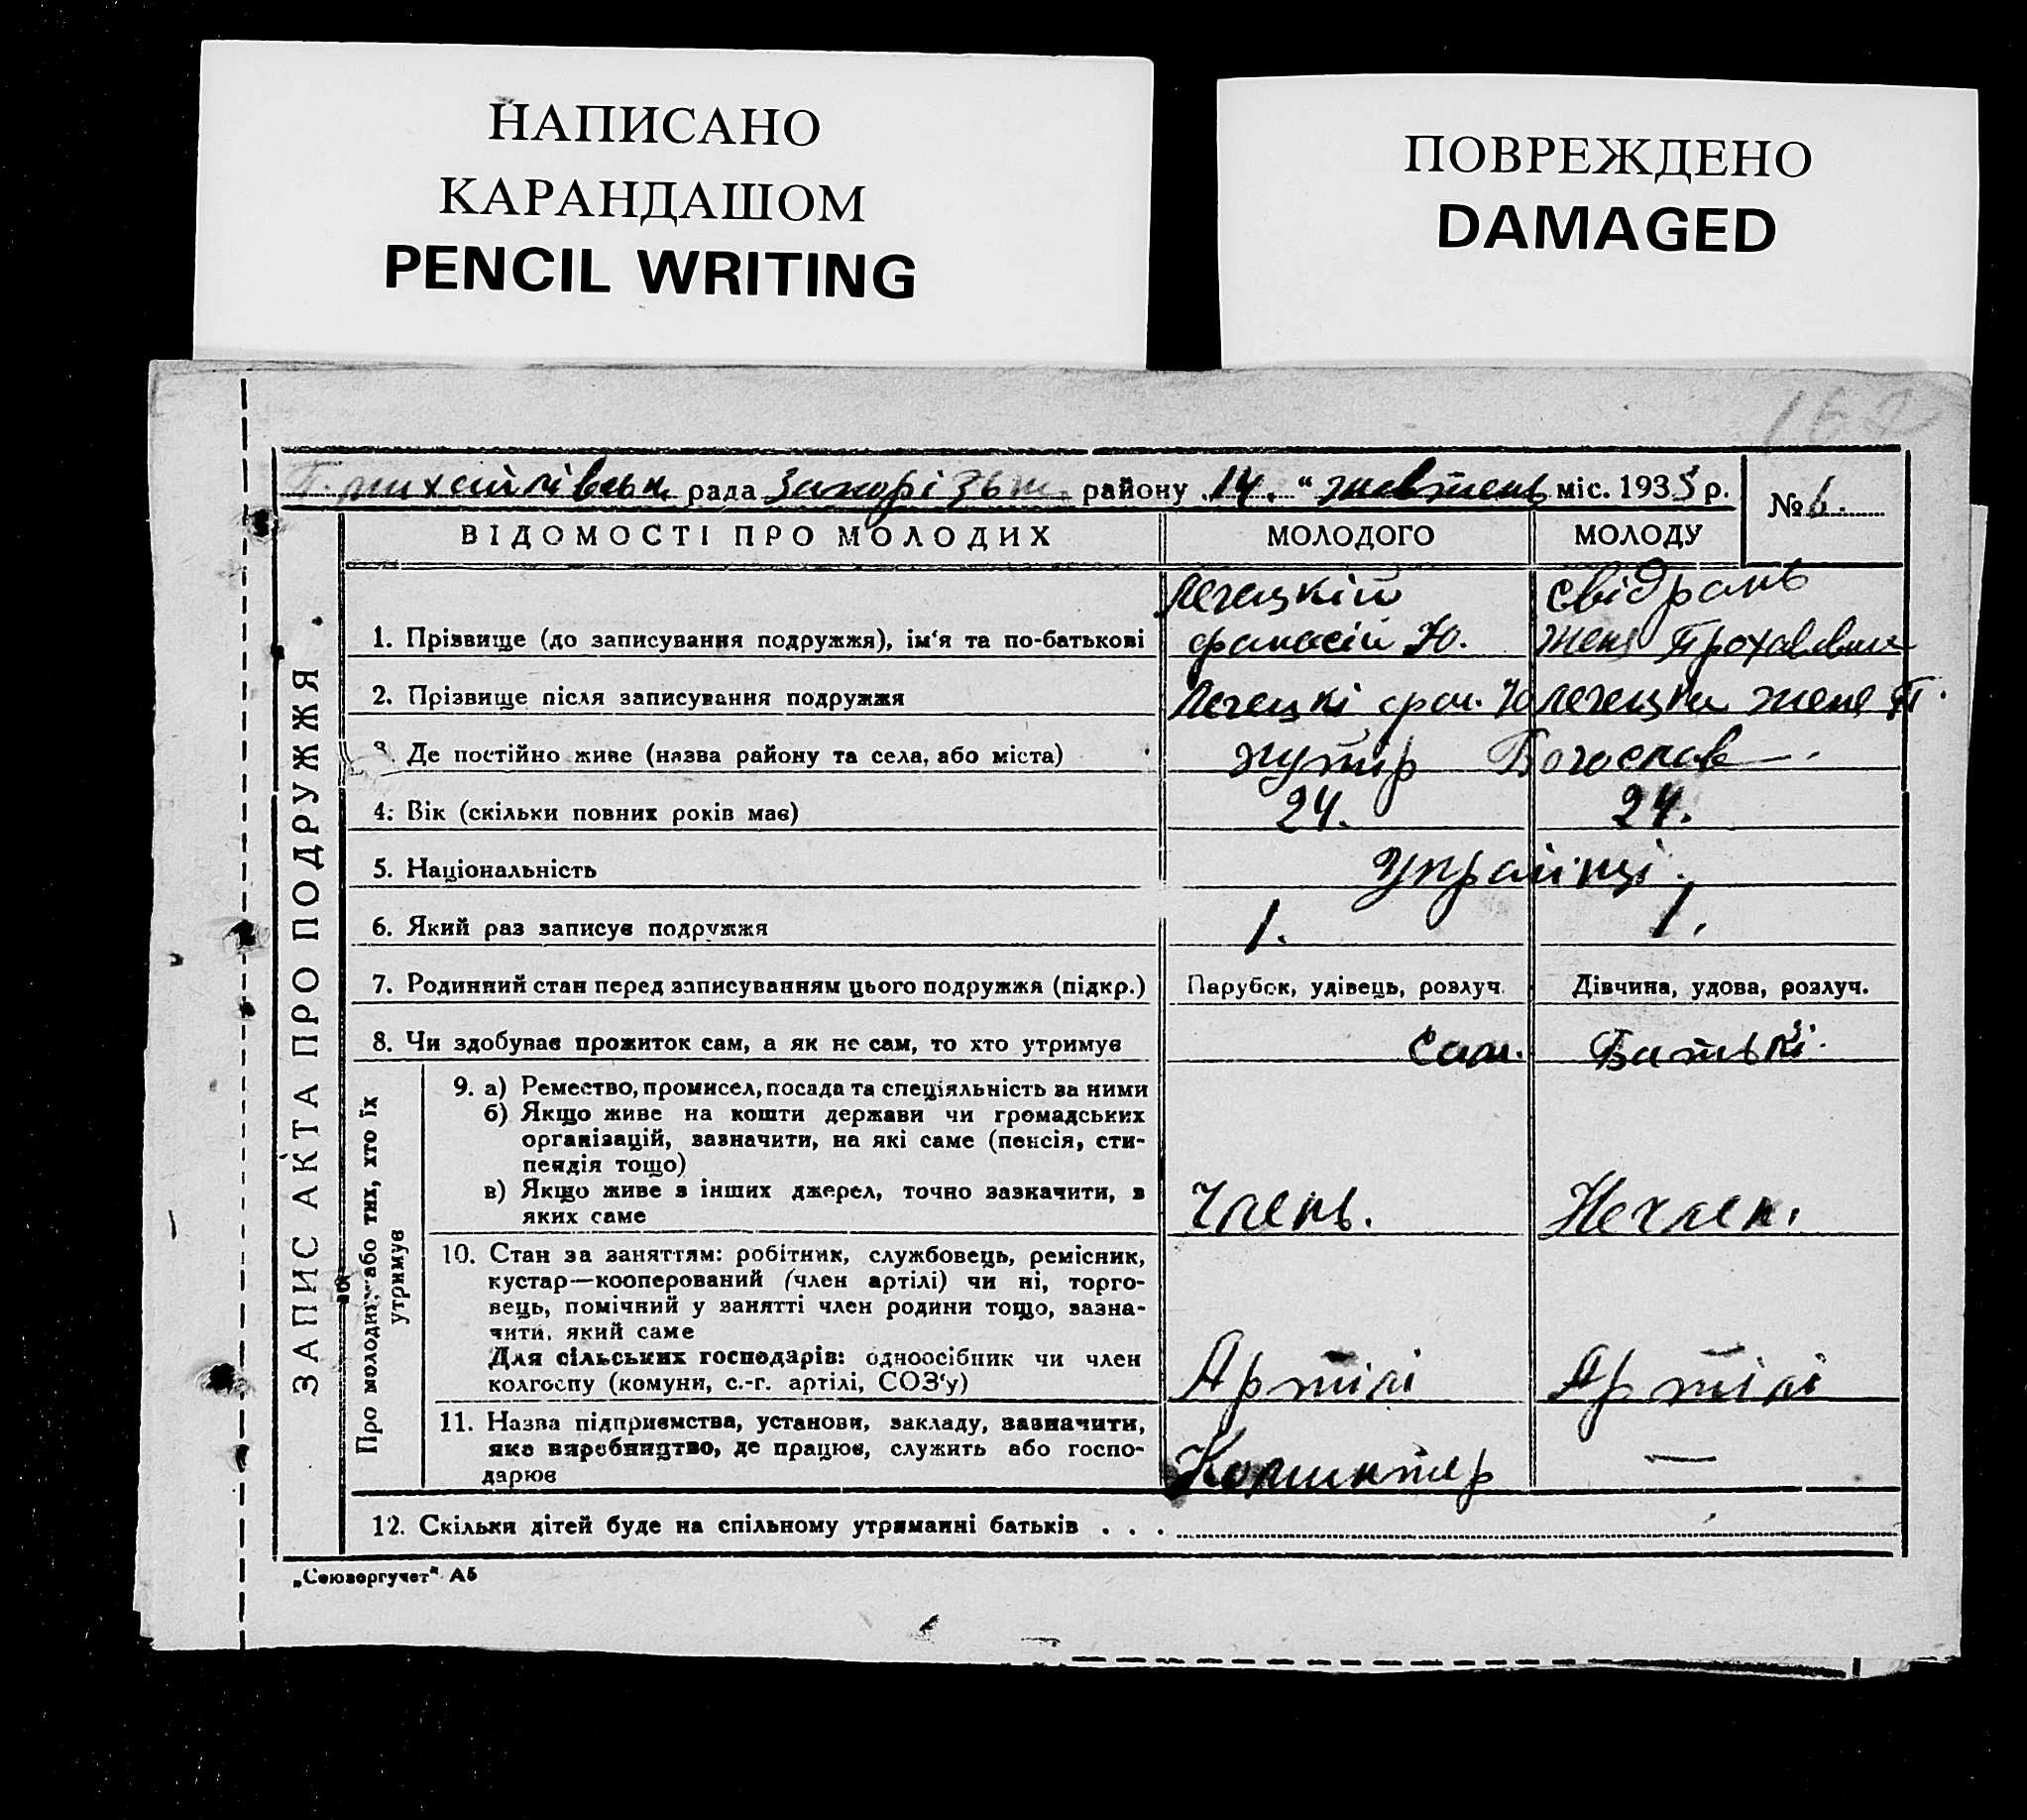 НАПИСАНО
КАРАНДАШОМ
PENCIL WRITING
ПОВРЕЖДЕНО
DAMAGED
рада району 14. " жовтень міс. 1933 р.
№ 6.
ВІДОМОСТІ ПРО МОЛОДИХ МОЛОДОГО МОЛОДУ
1. Прізвище (до записування подружжя), ім'я та по-батькові
2. Прізвище після записування подружжя
3. Де постійно живе (назва району та села, або міста) хутір Богослав
4. Вік (скільки повних років має) 24. 24.
5. Національність Українці.
6. Який раз записує подружжя 1. 1.
7. Родинний стан перед записуванням цього подружжя (підкр.) Парубок, удівець, розлуч. Дівчина, удова, розлуч.
8. Чи здобуває прожиток сам, а як не сам, то хто утримує Сам. Батькі.
9. а) Ремество, промисел, посада та спеціяльність за ними
б) Якщо живе на кошти держави чи громадських
організацій, зазначити, на які саме (пенсія, сти-
пендія тощо)
в) Якщо живе з інших джерел, точно зазначити, з
яких саме Члень. Нечлен.
10. Стан за заняттям: робітник, службовець, ремісник,
кустар—кооперований (член артілі) чи ні, торго-
вець, помічний у занятті член родини тощо, зазна-
чити, який саме
Для сільських господарів: одноосібник чи член
колгоспу (комуни, с.-г. артілі, СОЗ'у) Артілі Артілі
11. Назва підприємства, установи, закладу, зазначити,
яке виробництво, де працює, служить або госпо-
дарює —
12. Скільки дітей буде на спільному утриманні батьків . . .
ЗАПИС АКТА ПРО ПОДРУЖЖЯ
Про молодих або тих, хто їх
утримує
„Союзоргучет" А5